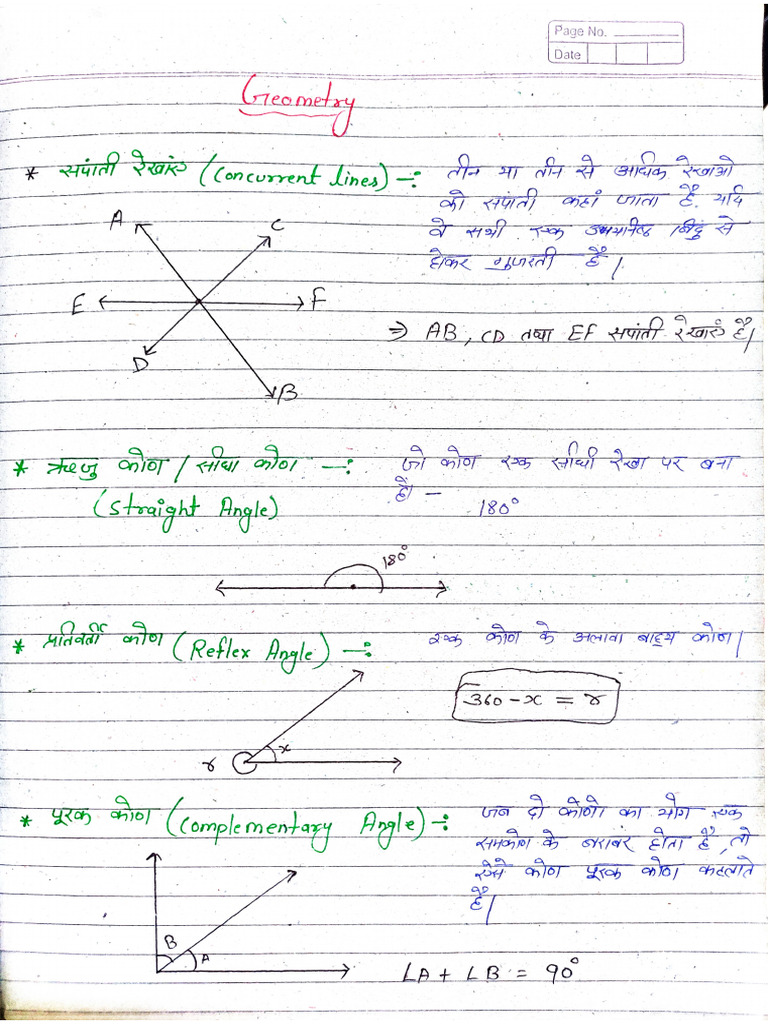 Page No.
Date
Geometry
* संपाती रेखाएं (Concurrent lines) –: तीन या तीन से अधिक रेखाओ
को संपाती कहां जाता है, यदि
वे सभी एक बिंदु से
होकर गुजरती है।
A
C
E
F
D
B
⇒ AB, CD तथा EF संपाती रेखाएं है।
* ऋजु कोण / सीधा कोण –: जो कोण एक सीधी रेखा पर बना
हो –
(Straight Angle) 180°
180°
* प्रतिवर्ती कोण (Reflex Angle) –: एक कोण के अलावा बाह्य कोण।
360 - x = r
x
r
* पूरक कोण (Complementary Angle) –: जब दो कोणो का योग एक
समकोण के बराबर होता है, तो
ऐसे कोण पूरक कोण कहलाते
है।
B
A
∠A + ∠B = 90°